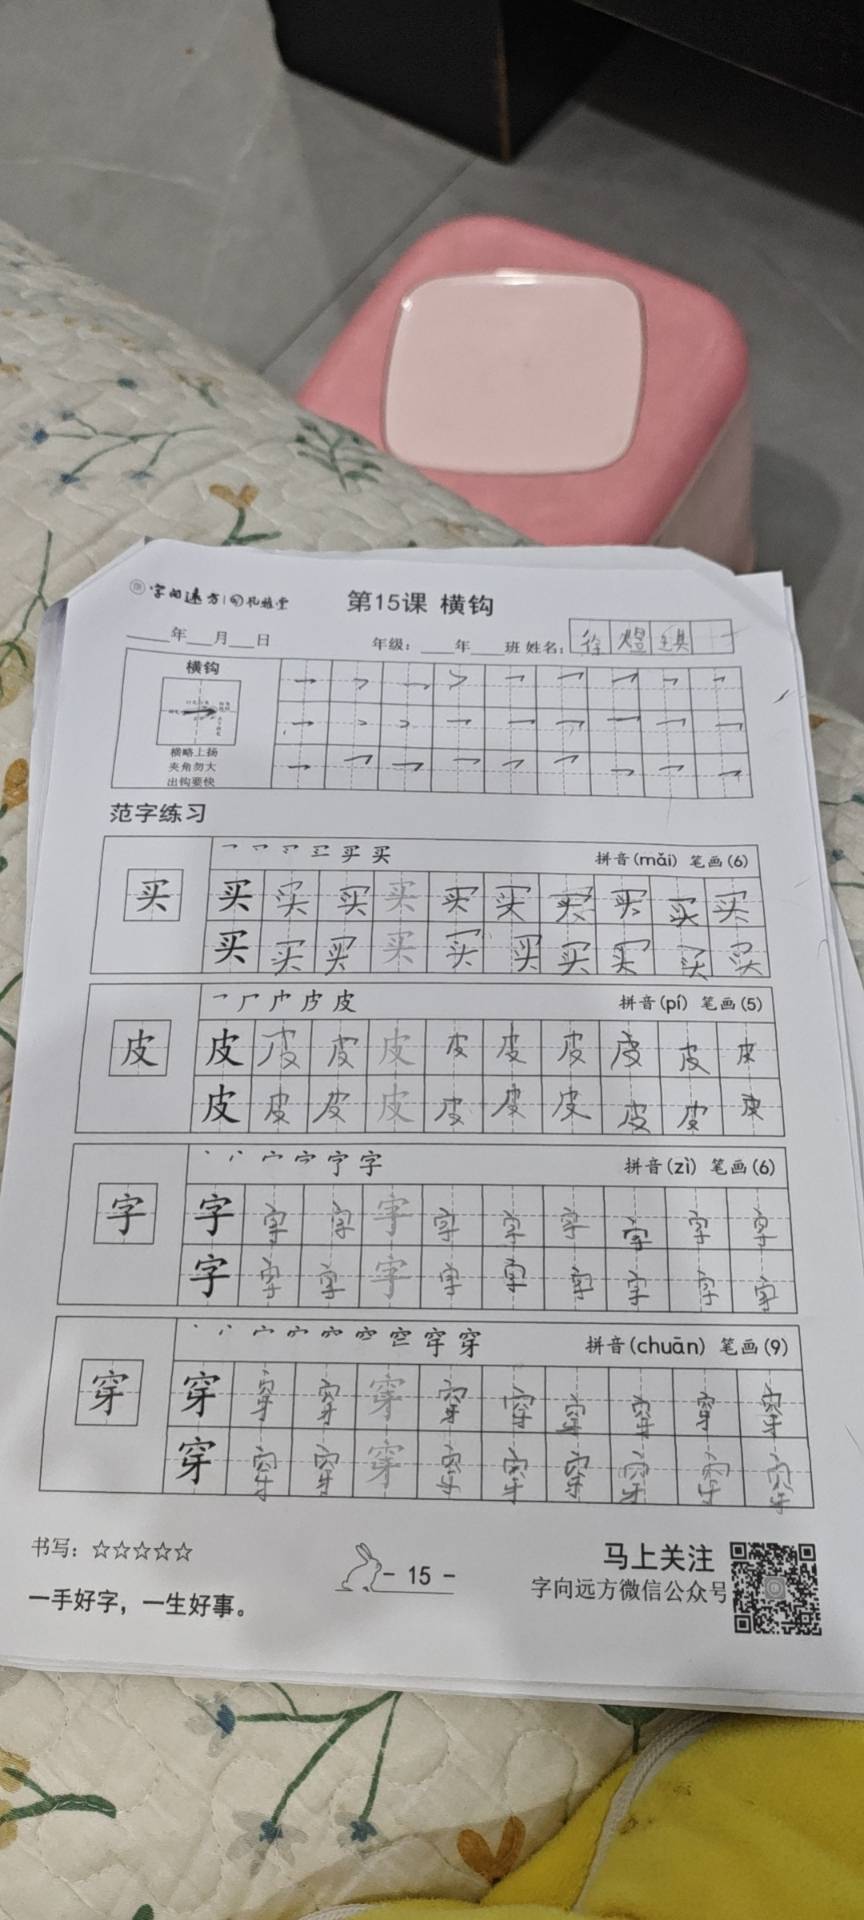 字向远方
第15课 横钩
____年___月___日 年级：____年____班 姓名：徐煜
横钩
横略上扬
夹角勿大
出钩要快
范字练习
买 拼音(mǎi) 笔画(6)
买 买 买 买 买 买 买 买 买 买
买 买 买 买 买 买 买 买 买 买
皮 拼音(pí) 笔画(5)
皮 皮 皮 皮 皮 皮 皮 皮 皮 皮
皮 皮 皮 皮 皮 皮 皮 皮 皮 皮
字 拼音(zì) 笔画(6)
字 字 字 字 字 字 字 字 字 字
字 字 字 字 字 字 字 字 字 字
穿 拼音(chuān) 笔画(9)
穿 穿 穿 穿 穿 穿 穿 穿 穿 穿
穿 穿 穿 穿 穿 穿 穿 穿 穿 穿
书写：☆☆☆☆☆
一手好字，一生好事。
- 15 -
马上关注
字向远方微信公众号